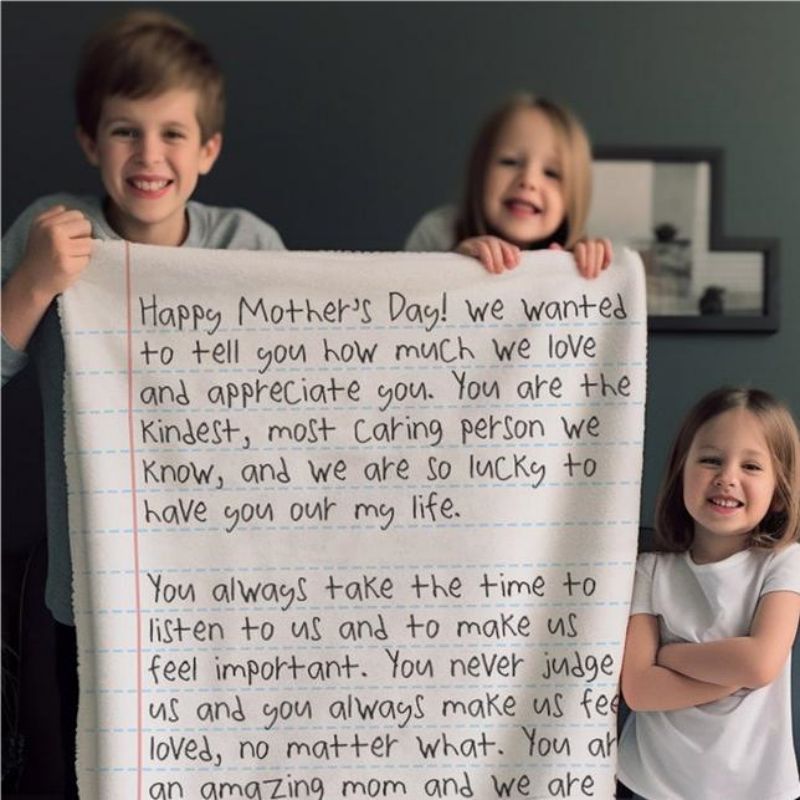 Happy Mother's Day! we wanted
to tell you how much we love
and appreciate you. You are the
kindest, most caring person we
know, and we are so lucky to
have you our my life.
You always take the time to
listen to us and to make us
feel important. You never judge
us and you always make us fee
loved, no matter what. You ar
an amazing mom and we are